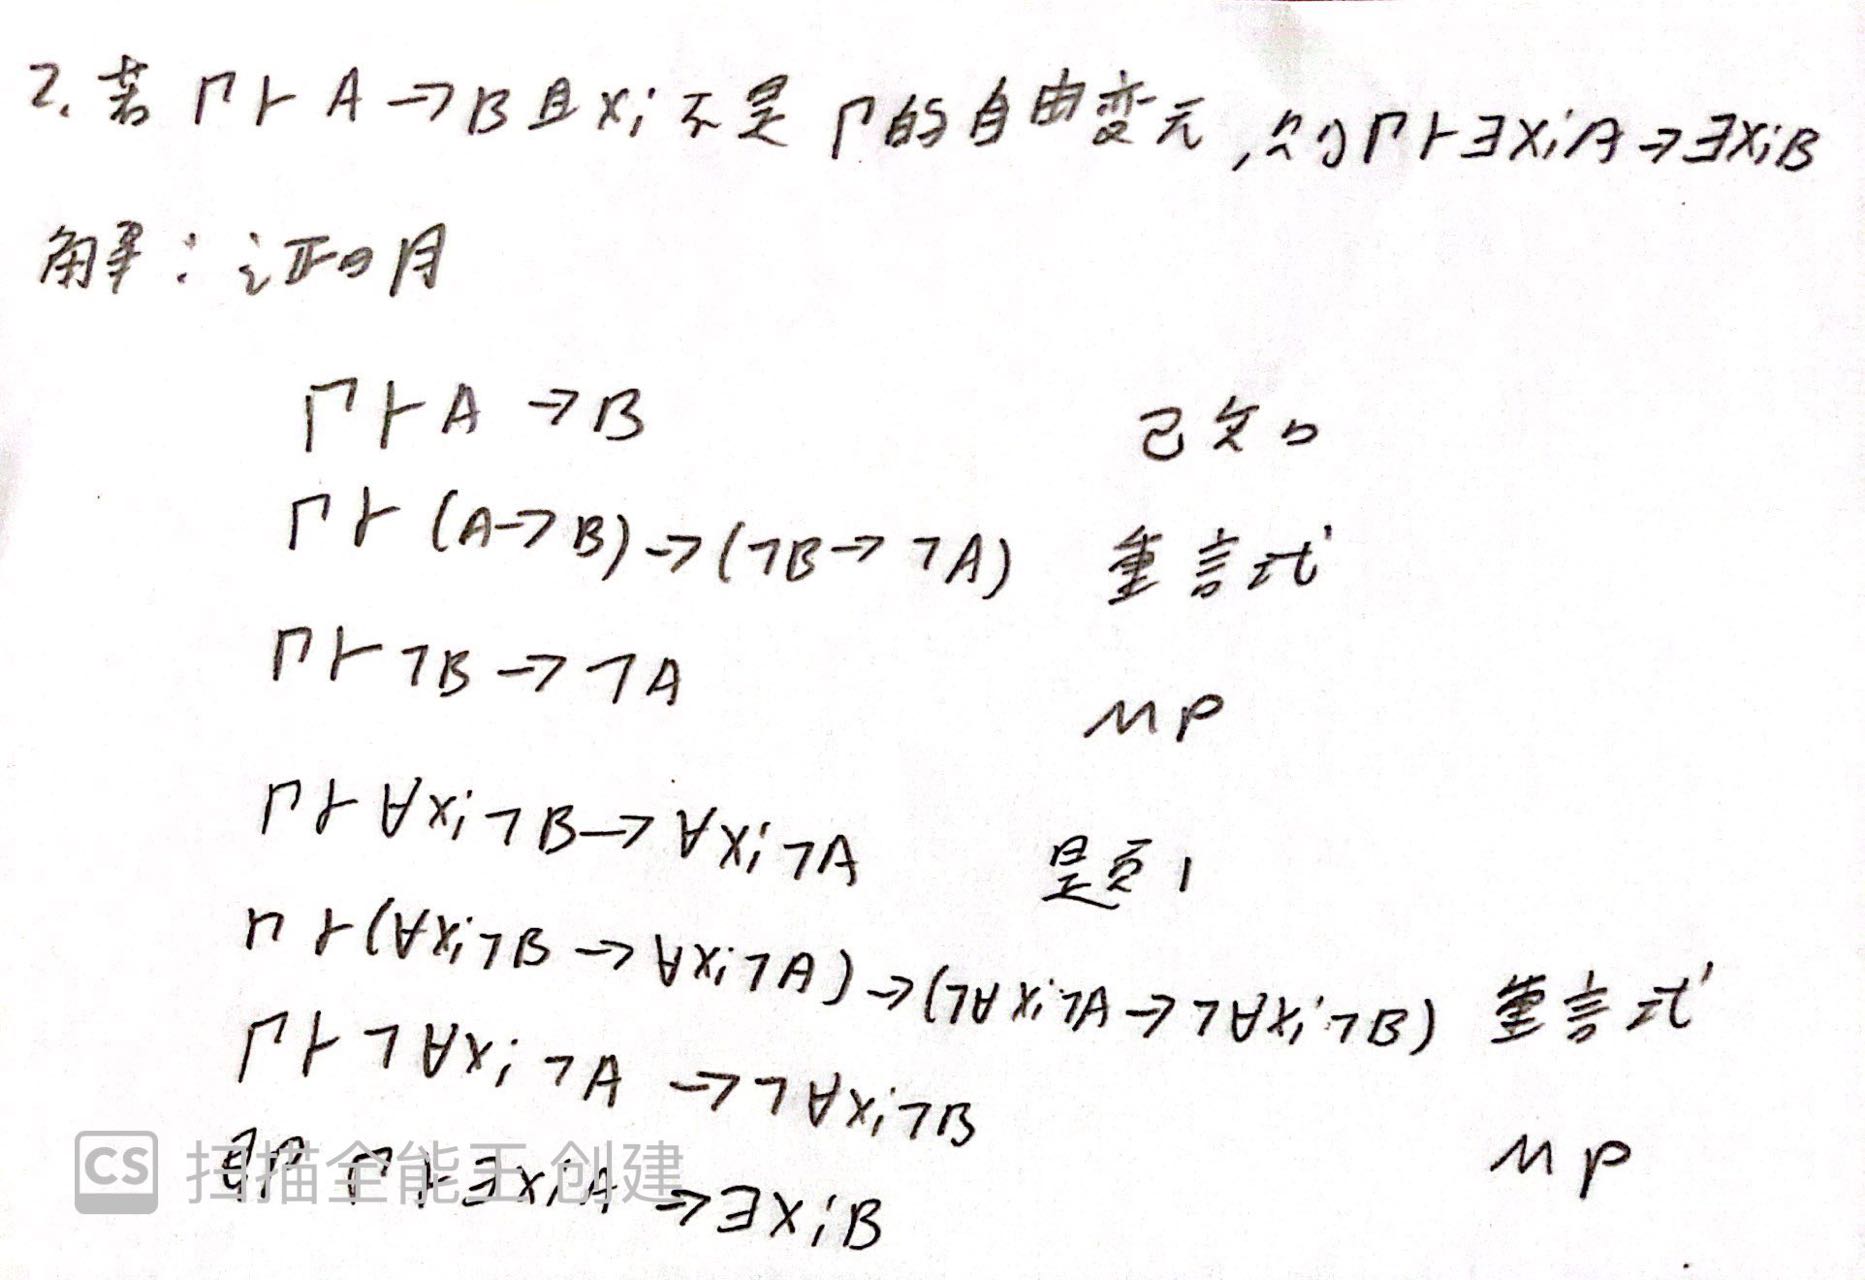 2. 若 Γ⊢A→B且xi不是Γ的自由变元,则Γ⊢∃xiA→∃xiB
解：证明
Γ⊢A→B 已知
Γ⊢(A→B)→(¬B→¬A) 重言式
Γ⊢¬B→¬A MP
Γ⊢∀xi¬B→∀xi¬A 题1
Γ⊢(∀xi¬B→∀xi¬A)→(¬∀xi¬A→¬∀xi¬B) 重言式
Γ⊢¬∀xi¬A→¬∀xi¬B MP
即 Γ⊢∃xiA→∃xiB
CS 扫描全能王 创建